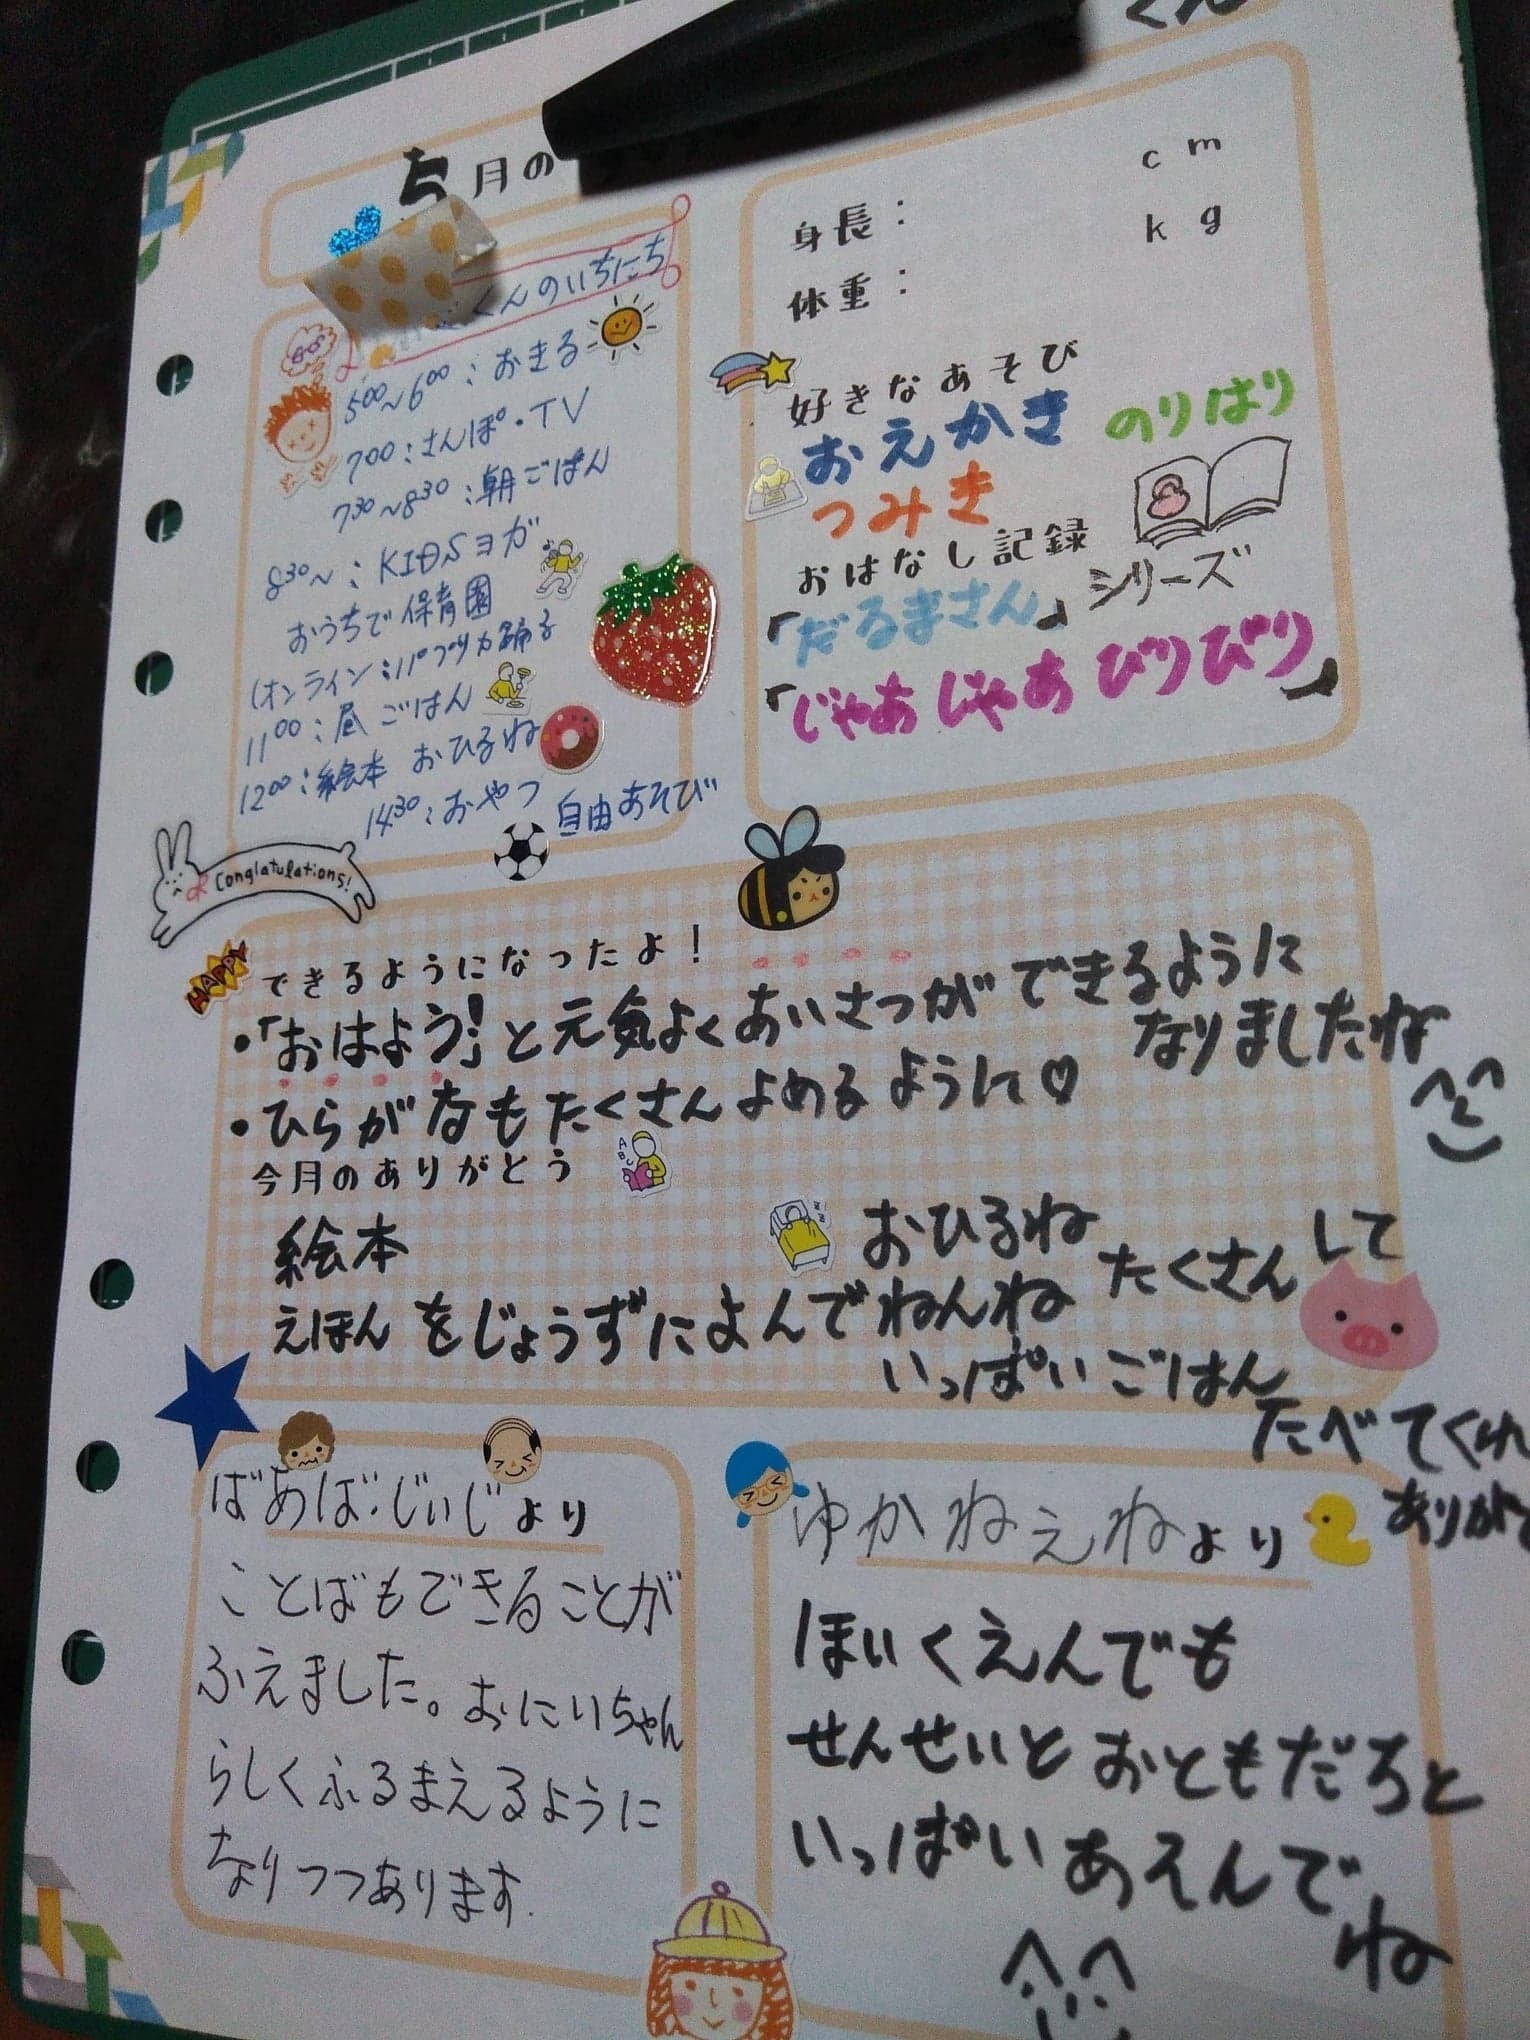 くん
5月の
くんのいちにち
5⁰⁰~6⁰⁰:おきる
7⁰⁰:さんぽ・TV
7³⁰~8³⁰:朝ごはん
8³⁰~:KIDSヨガ
おうちで保育園
(オンライン:パプリカ踊る
11⁰⁰:昼ごはん
12⁰⁰:絵本 おひるね
14³⁰:おやつ 自由あそび
身長: cm
体重: kg
好きなあそび
おえかき のりはり
つみき
おはなし記録
「だるまさん」シリーズ
「じゃあじゃあびりびり」
Conglatulations!
HAPPY
できるようになったよ!
・「おはよう!」と元気よくあいさつができるように
なりましたね
・ひらがなもたくさんよめるように♡
ABC
今月のありがとう
絵本
えほんをじょうずによんで
おひるね
ねんねたくさんして
いっぱいごはん
たべてくれ
ありがと
ばあば・じぃじより
ことばもできることが
ふえました。おにいちゃん
らしくふるまえるように
なりつつあります.
ゆかねぇねより
ほいくえんでも
せんせいとおともだちと
いっぱいあそんで
ね